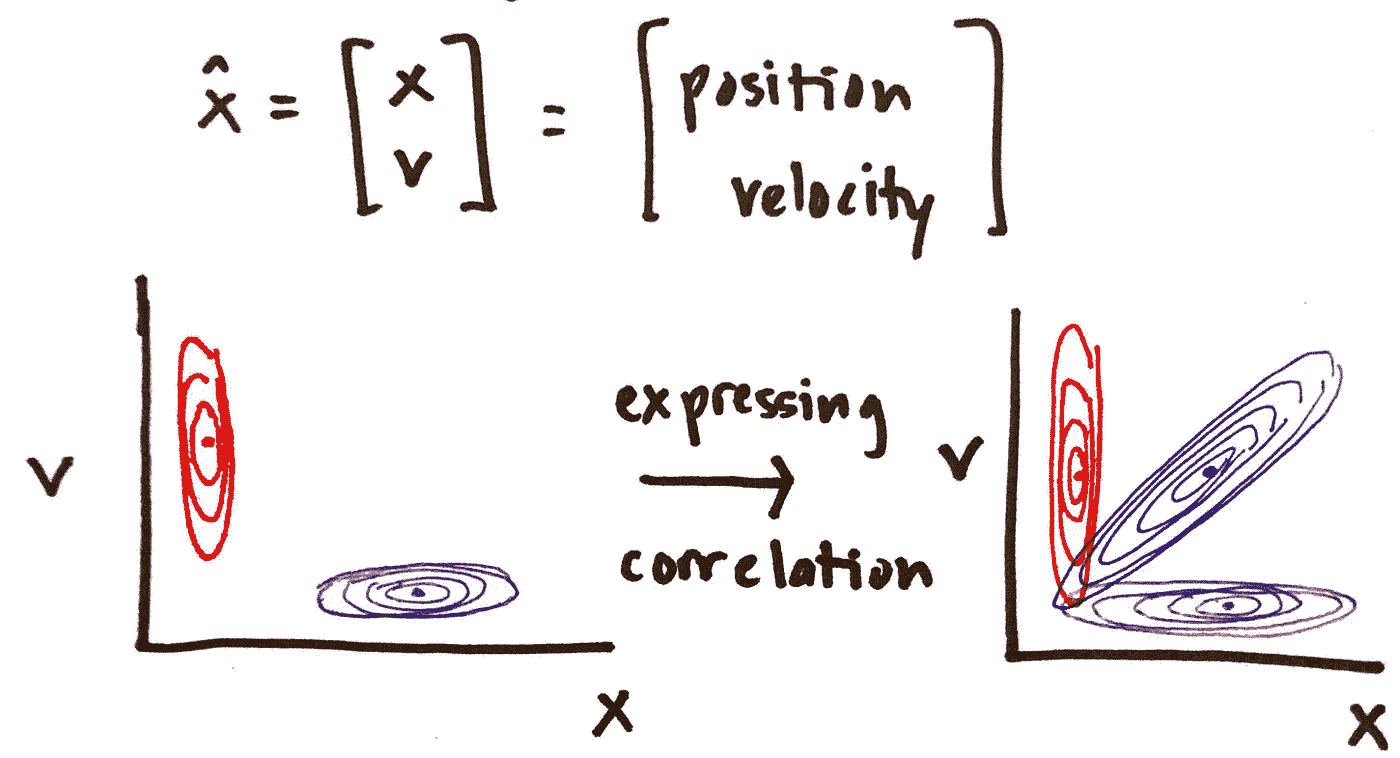 x̂ = [x v] = [position velocity]
v
expressing
correlation
x
v
x